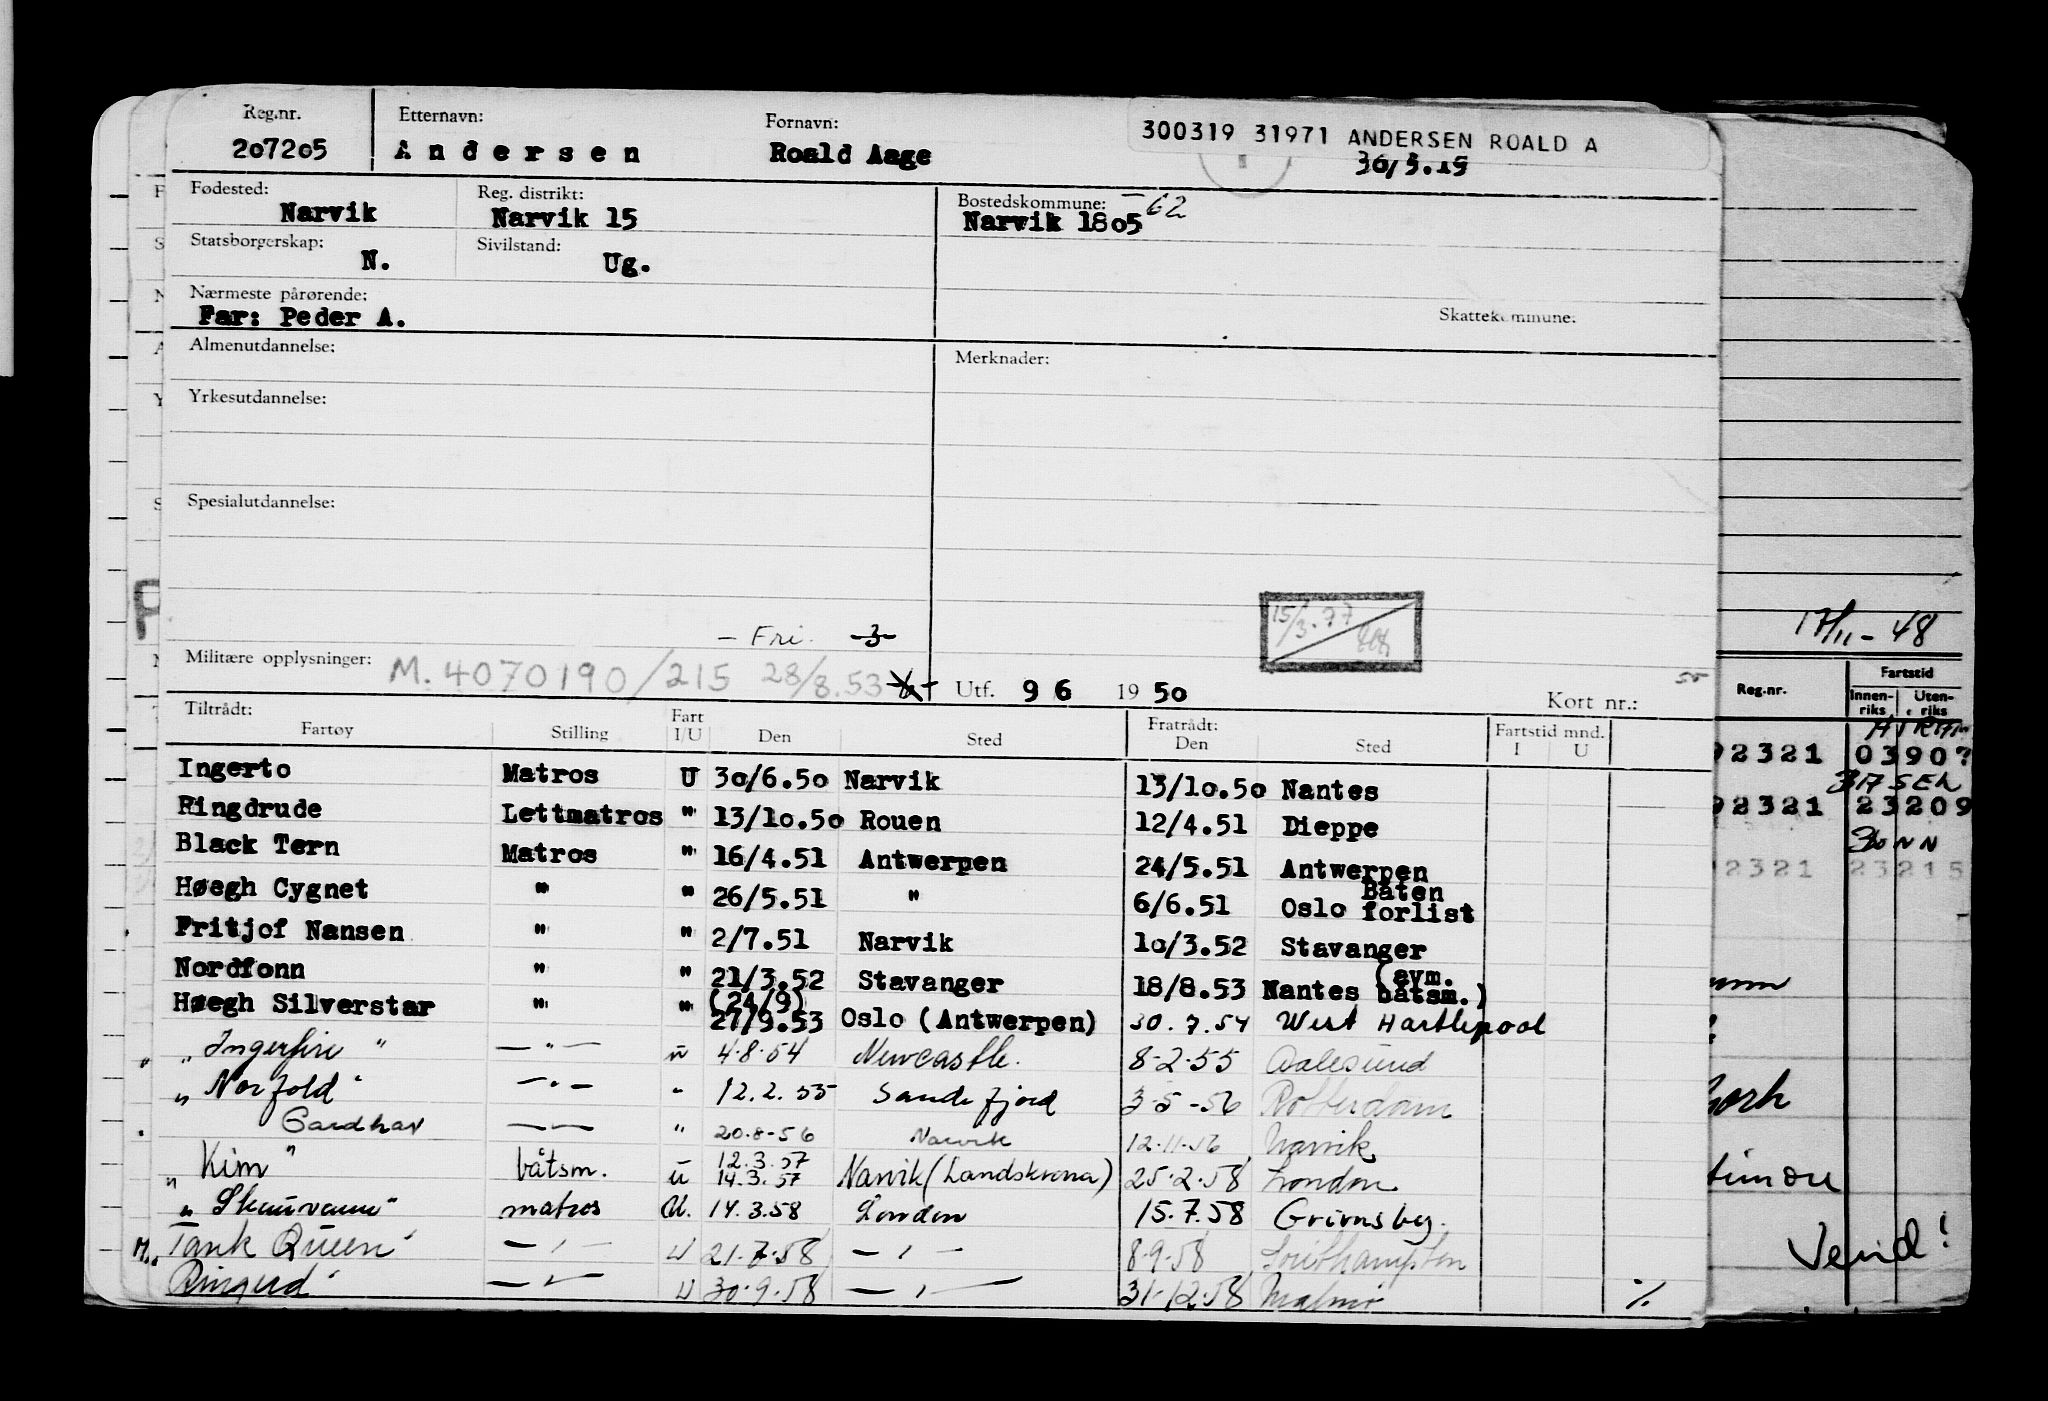 300319 31971 ANDERSEN ROALD A
Reg.nr. Etternavn: Fornavn:
207205 Andersen Roald Aage 30/3.19
Fødested: Reg. distrikt: Bostedskommune: - 62
Narvik Narvik 15 Narvik 1805
Statsborgerskap: Sivilstand:
N. Ug.
Nærmeste pårørende:
Far: Peder A. Skattekommune:
Almenutdannelse: Merknader:
Yrkesutdannelse:
Spesialutdannelse:
15/3.77
- Fri. 3
Militære opplysninger: M.4070190/215 28/8.53
Utf. 9 6 1950 Kort nr.:
Tiltrådt: Fart Fratrådt: Fartstid mnd.
Fartøy Stilling I/U Den Sted Den Sted I U
Ingerto Matros U 30/6.50 Narvik 13/10.50 Nantes
Ringdrude Lettmatros " 13/10.50 Rouen 12/4.51 Dieppe
Black Tern Matros " 16/4.51 Antwerpen 24/5.51 Antwerpen
Høegh Cygnet " " 26/5.51 " 6/6.51 Oslo Båten forlist
Fritjof Nansen " " 2/7.51 Narvik 10/3.52 Stavanger
Nordfonn " " 21/3.52 Stavanger 18/8.53 Nantes (avm. båtsm.)
Høegh Silverstar " " (24/9) 27/9.53 Oslo (Antwerpen) 30.7.54 West Hartlepool
" " Ingerfire " — " — u 4.8.54 Newcastle. 8-2-55 Aalesund
" Norfold " — " — " 12.2.55 Sandefjord 3-5-56 Rotterdam
Gardhav — — " 20.8-56 Narvik 12.11.56 Narvik
" Kim " båtsm. u 12.3.57 14.3.57 Narvik (Landskrona) 25.2.58 London
" Skauvann" matros U. 14.3.58 London 15.7.58 Grimsby.
M. Tank Queen" — " — U 21.7.58 — " — 8.9.58 Southampton
Ringerd" — " — U 30.9.58 — " — 31.12.58 Malmø %
17/11-48
Reg.nr. Fartstid
Innenriks Utenriks
92321 0390?
92321 23209
92321 23215
Vend!